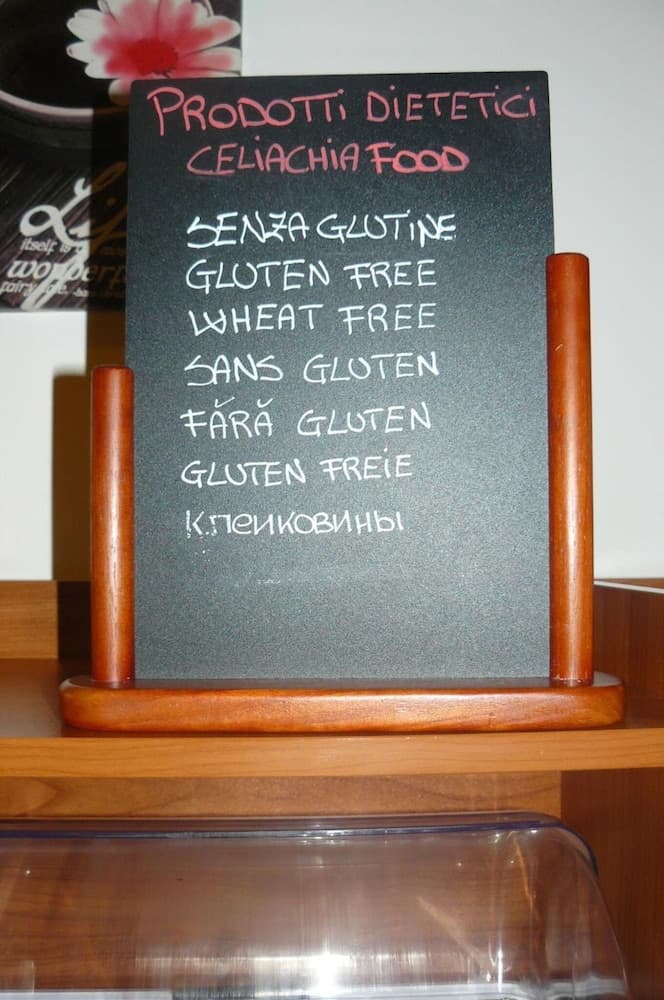 PRODOTTi DIETETICI
CELIACHIA FOOD
SENZA GLUTINE
GLUTEN FREE
WHEAT FREE
SANS GLUTEN
FĂRĂ GLUTEN
GLUTEN FREIE
Клеиковины
itself is
fairy